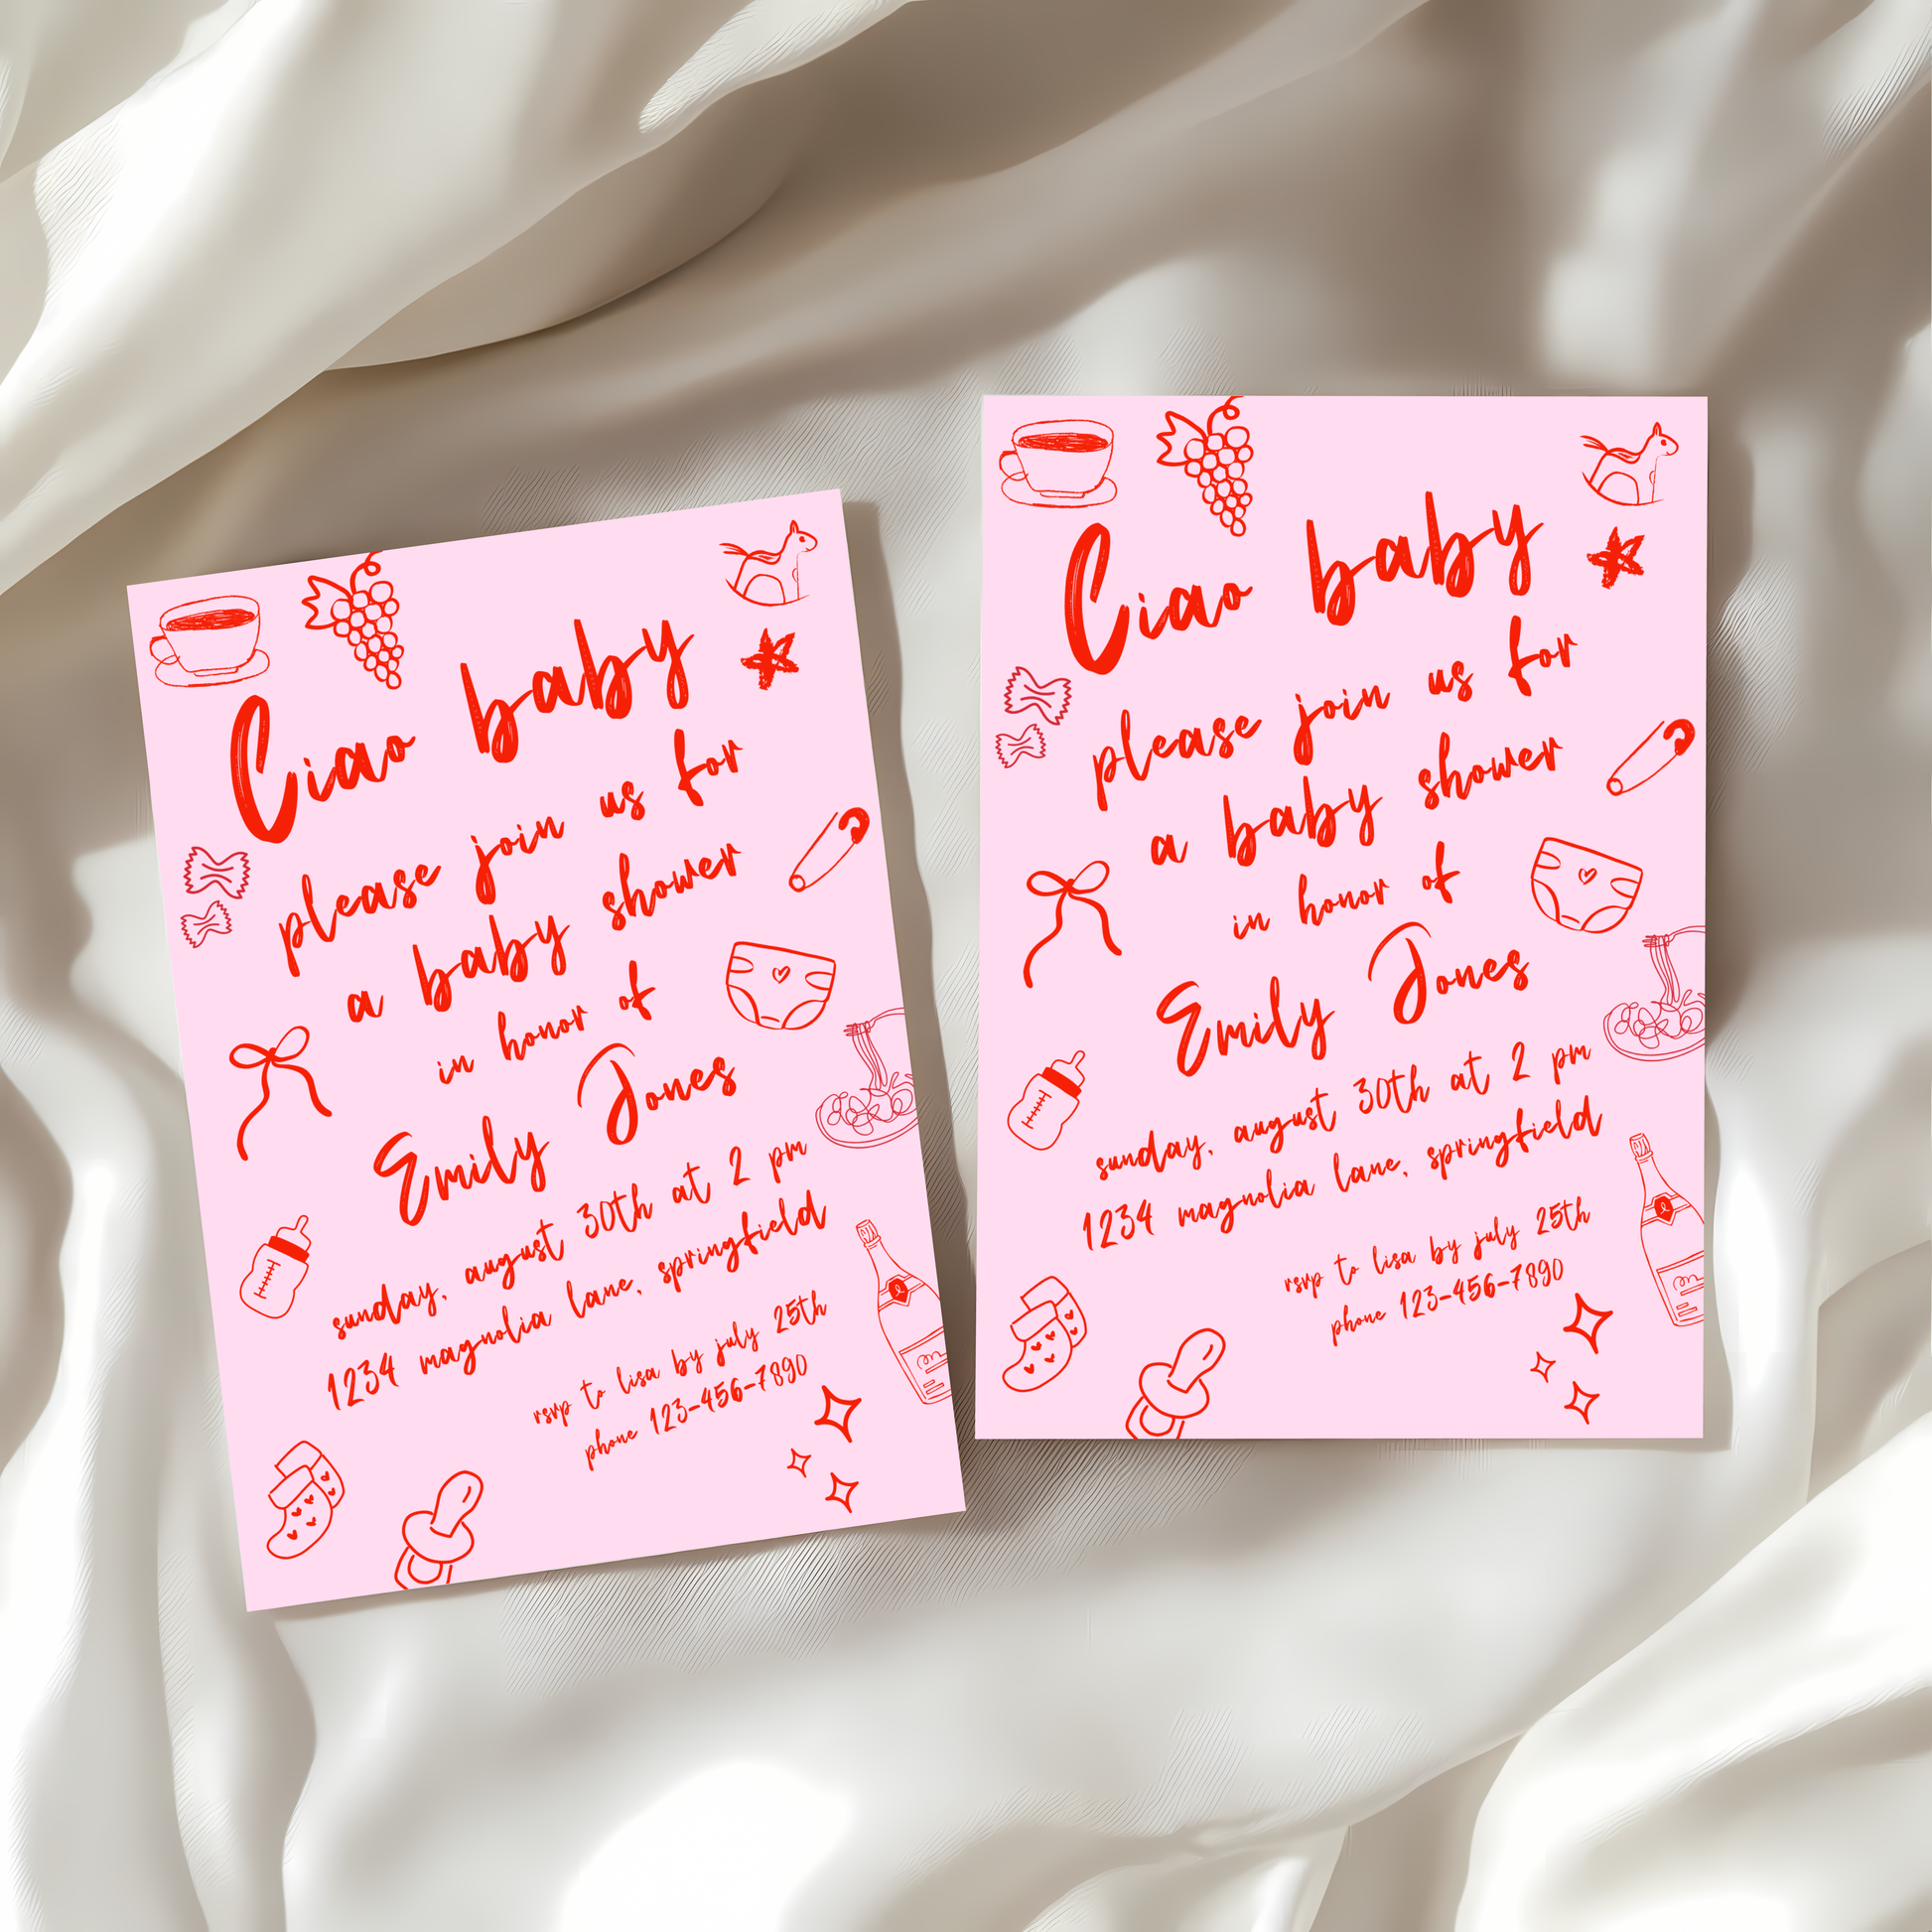 Ciao baby
please join us for
a baby shower
in honor of
Emily Jones
sunday, august 30th at 2 pm
1234 magnolia lane, springfield
rsvp to lisa by july 25th
phone 123-456-7890
Ciao baby
please join us for
a baby shower
in honor of
Emily Jones
sunday, august 30th at 2 pm
1234 magnolia lane, springfield
rsvp to lisa by july 25th
phone 123-456-7890